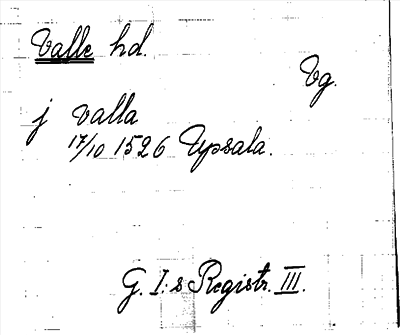 Valle hd.
Vg.
j valla
17/10 1526 Upsala.
G. I:s Registr. III.